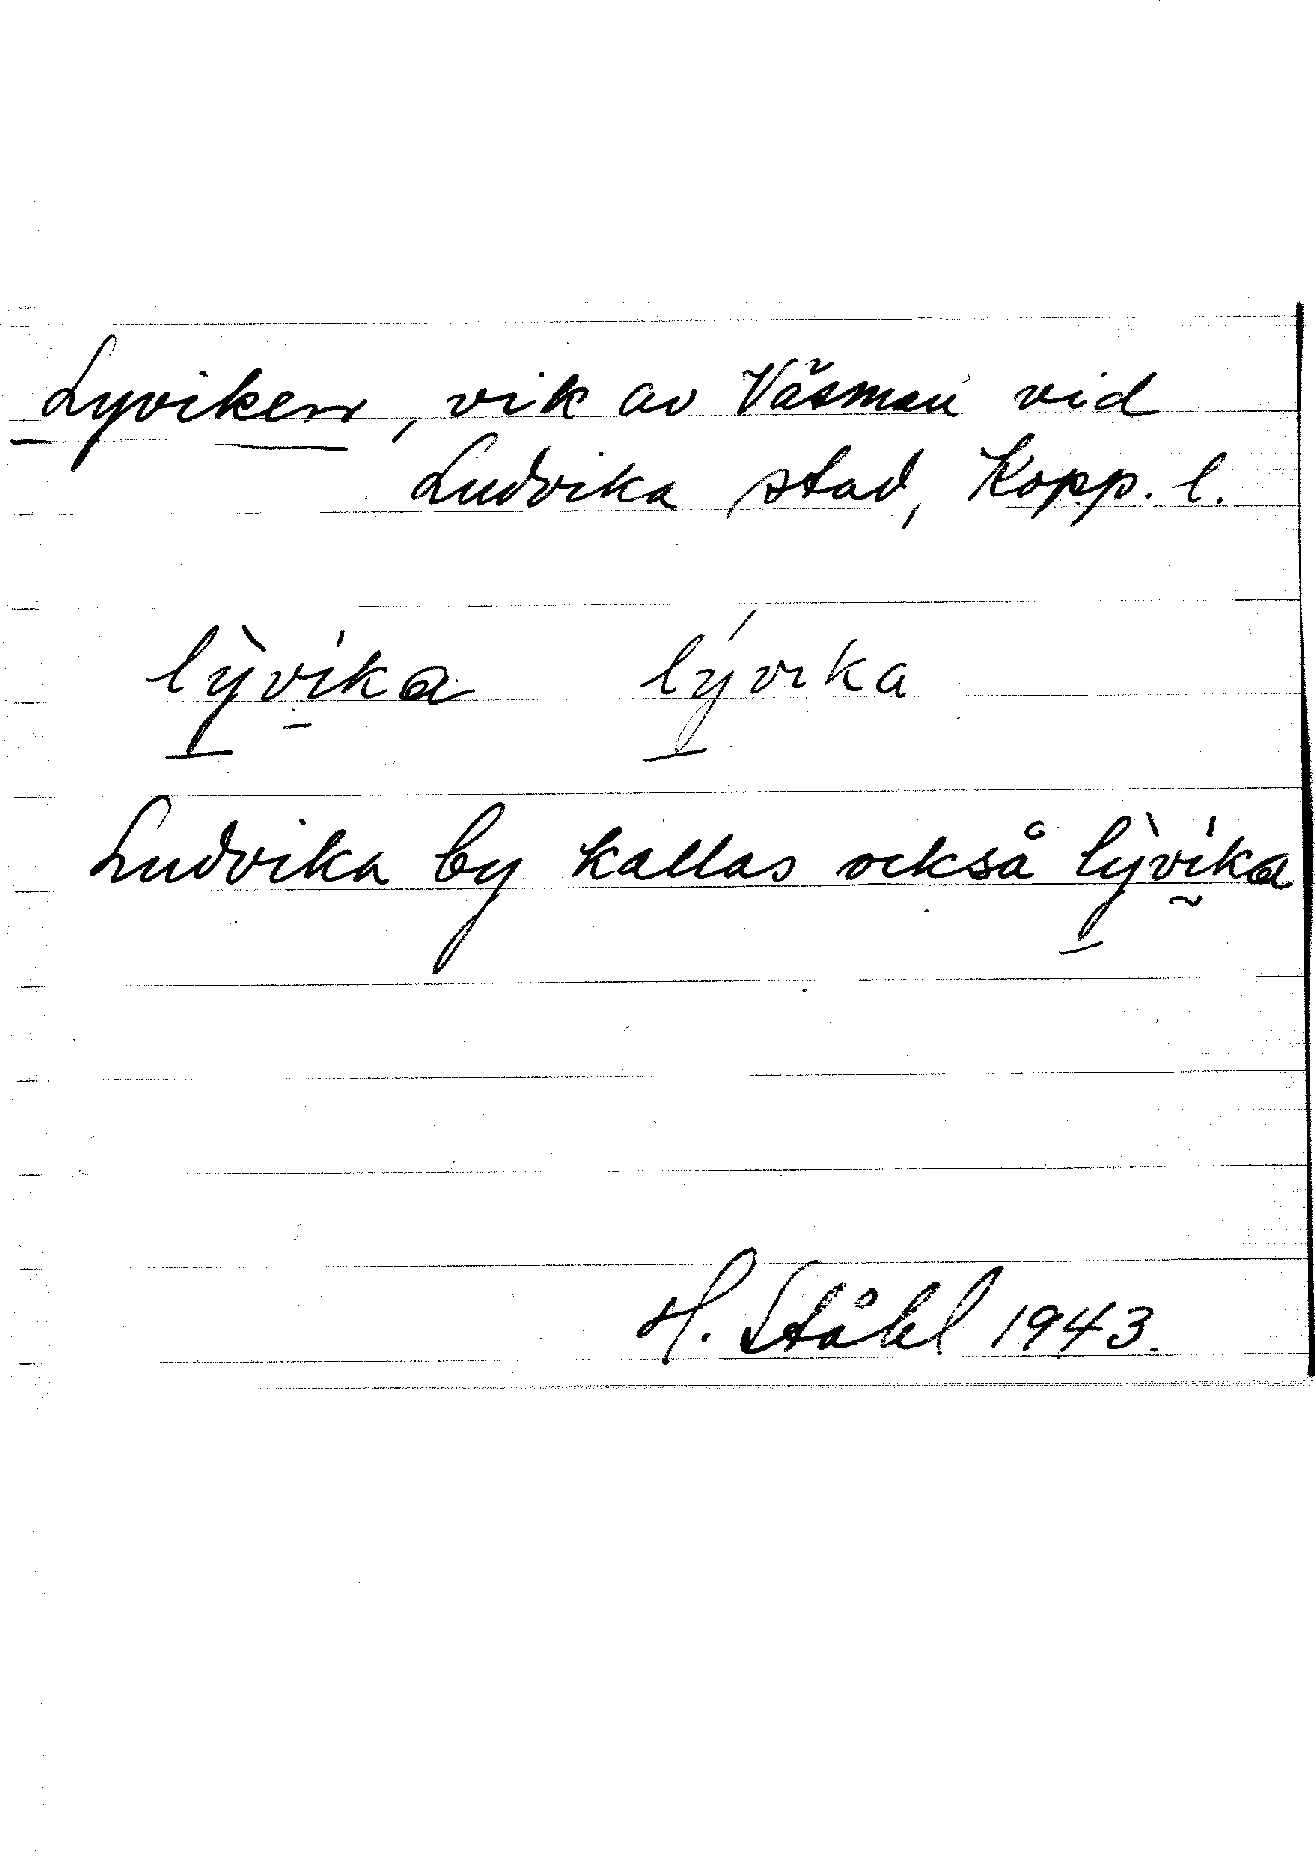 Lyviken, vik av Väsman vid
Ludvika stad, Kopp. l.
lỳvíka lývika
Ludvika by kallas också lỳvíka
H. Ståhl 1943.